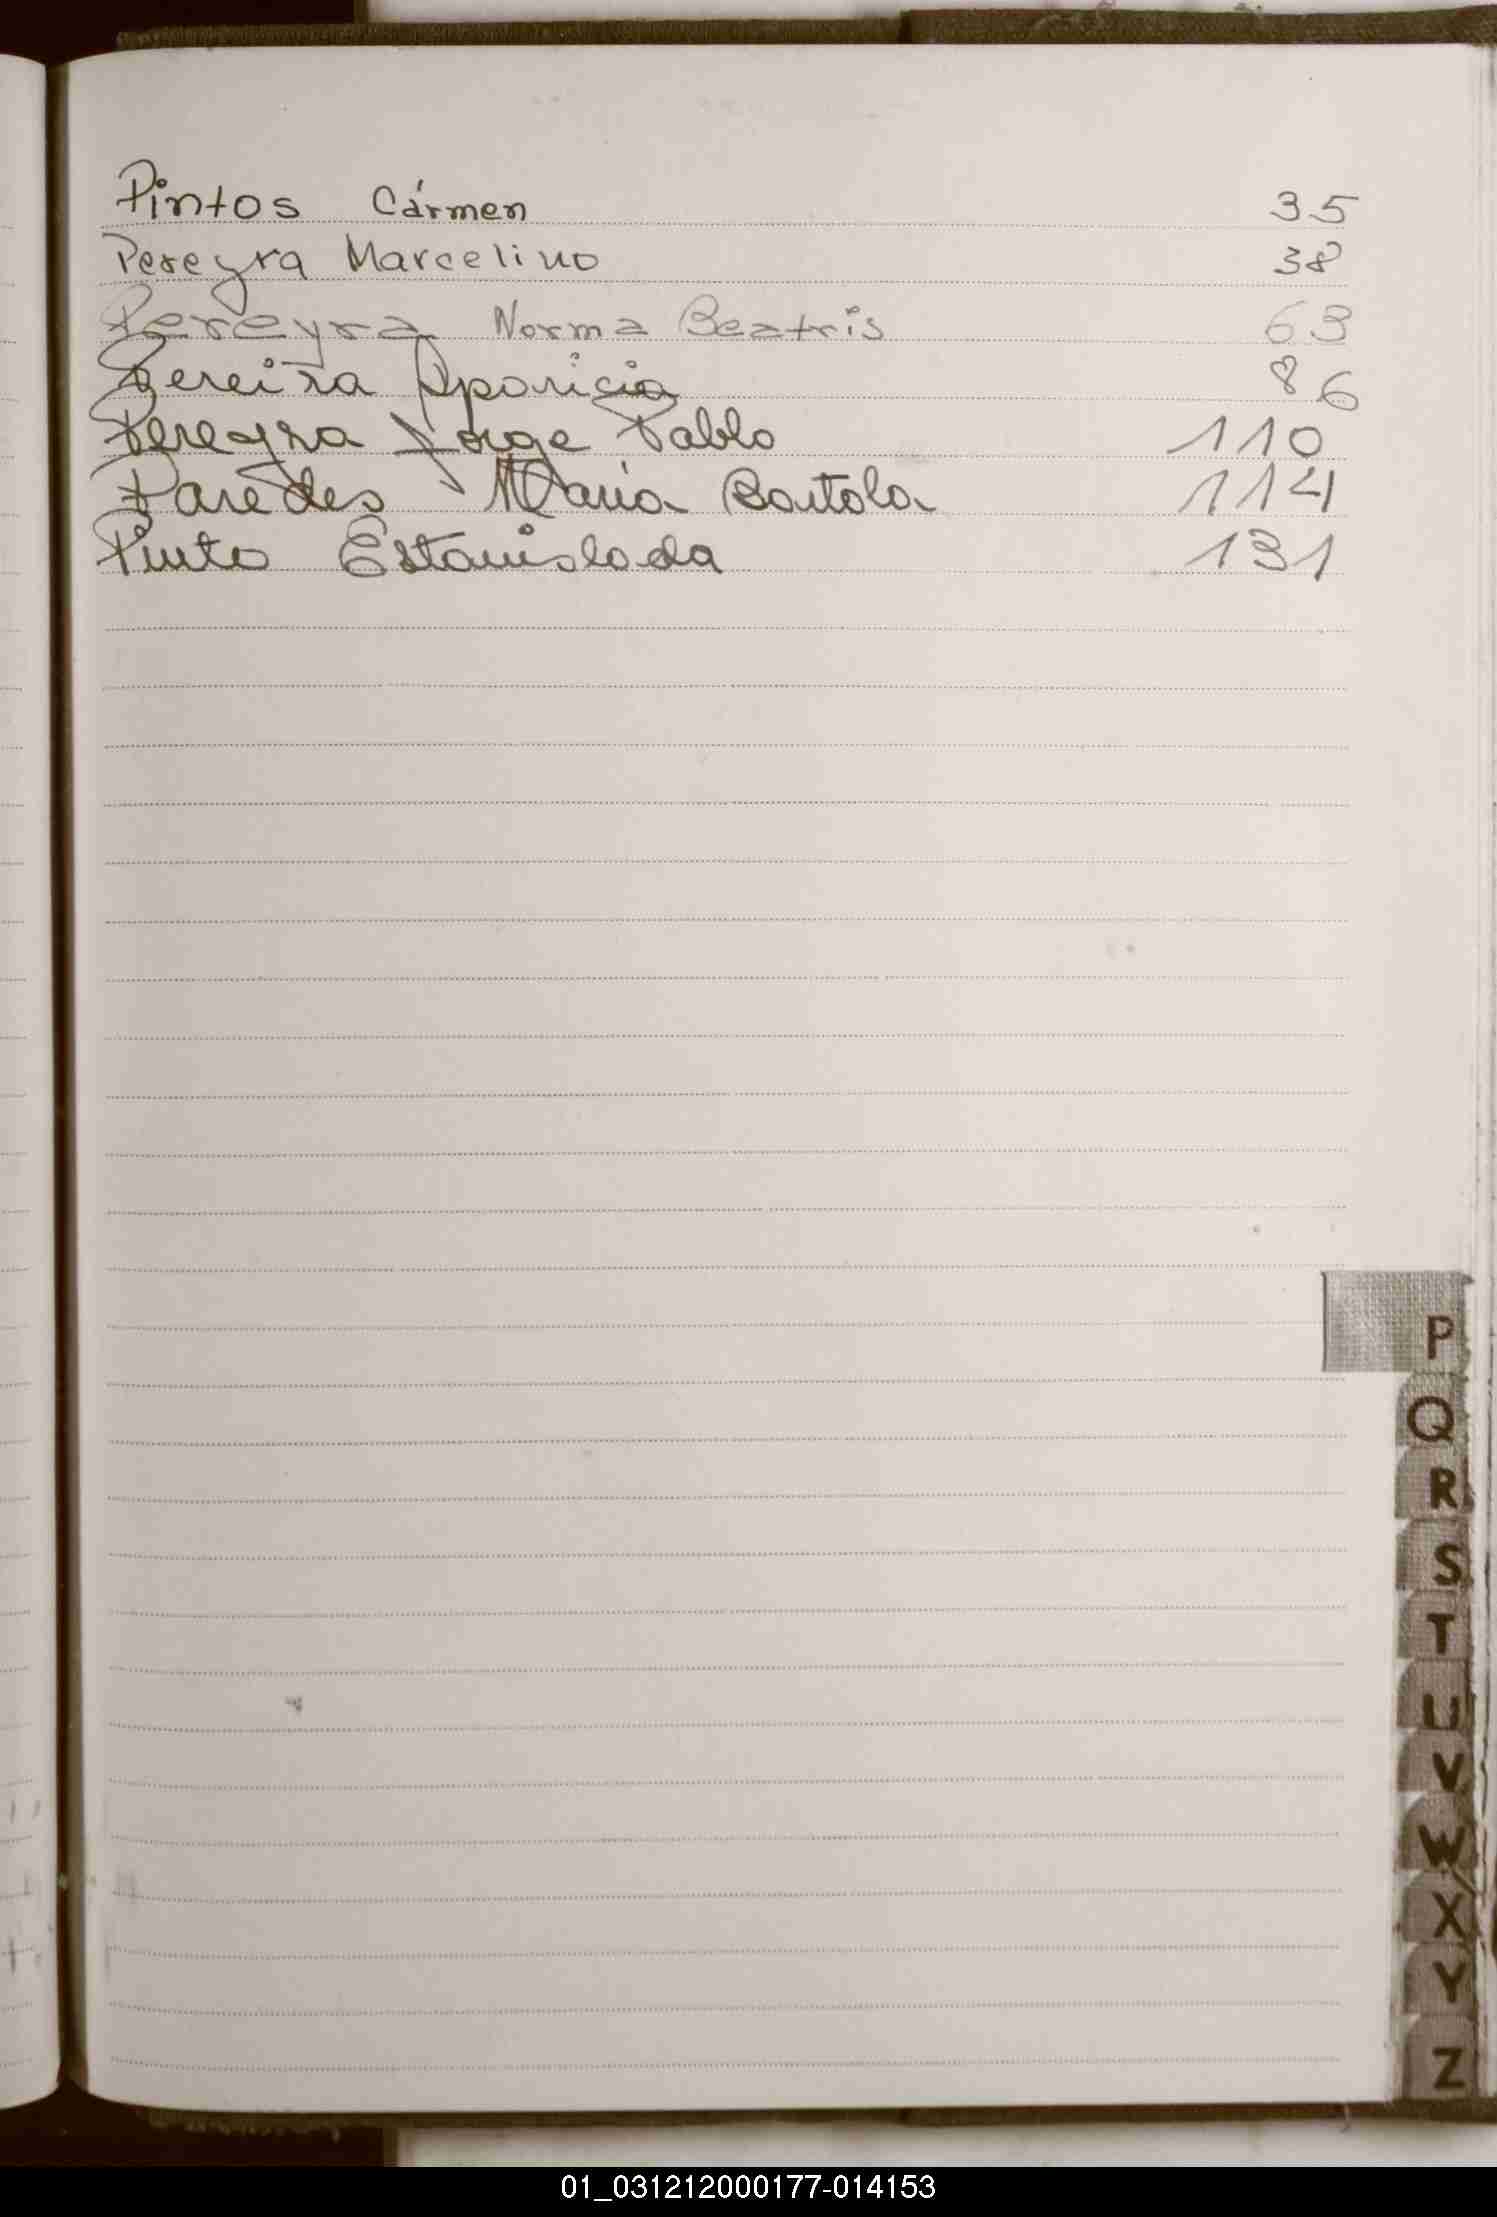 Pintos Cármen 35
Pereyra Marcelino 38
Pereyra Norma Beatris 63
Pereira Aparicia 86
Pereyra Jorge Pablo 110
Paredes Maria Bartola 114
Pinto Estanislada 131
P
Q
R
S
T
U
V
W
X
Y
Z
01_031212000177-014153